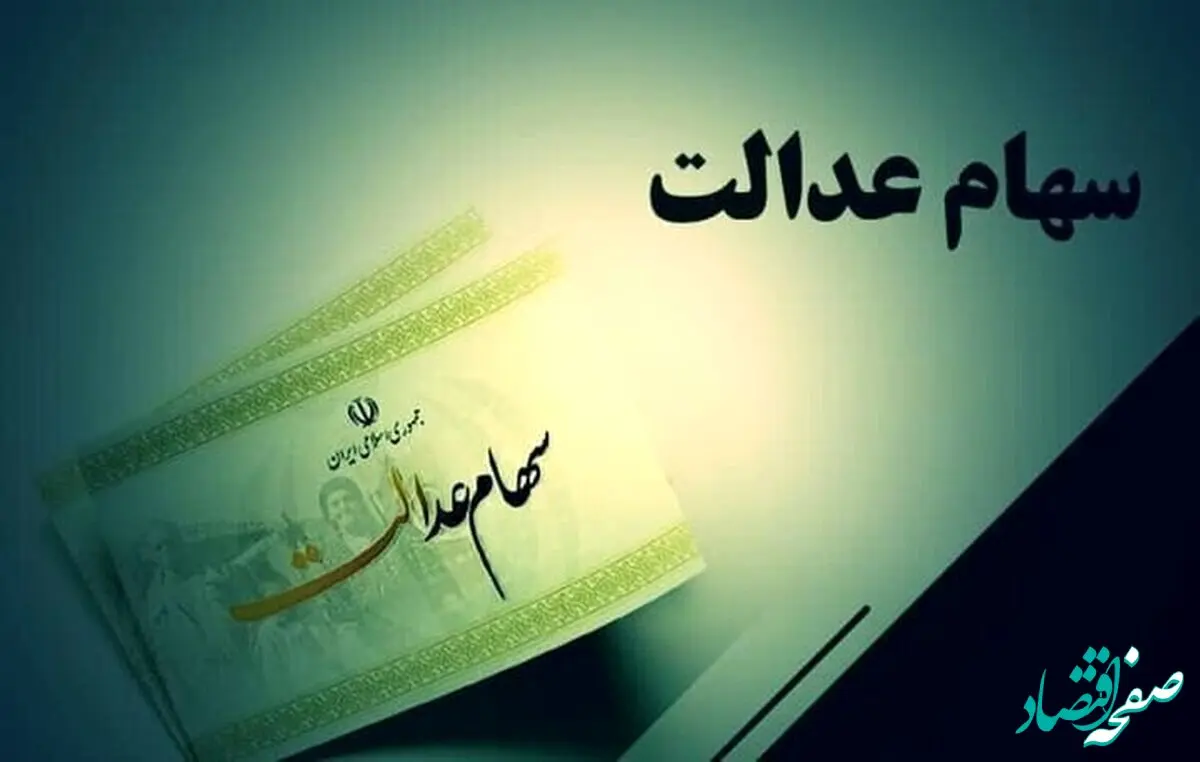 سهام عدالت
جمهوری اسلامی ایران
سهام عدالت
صفحه اقتصاد